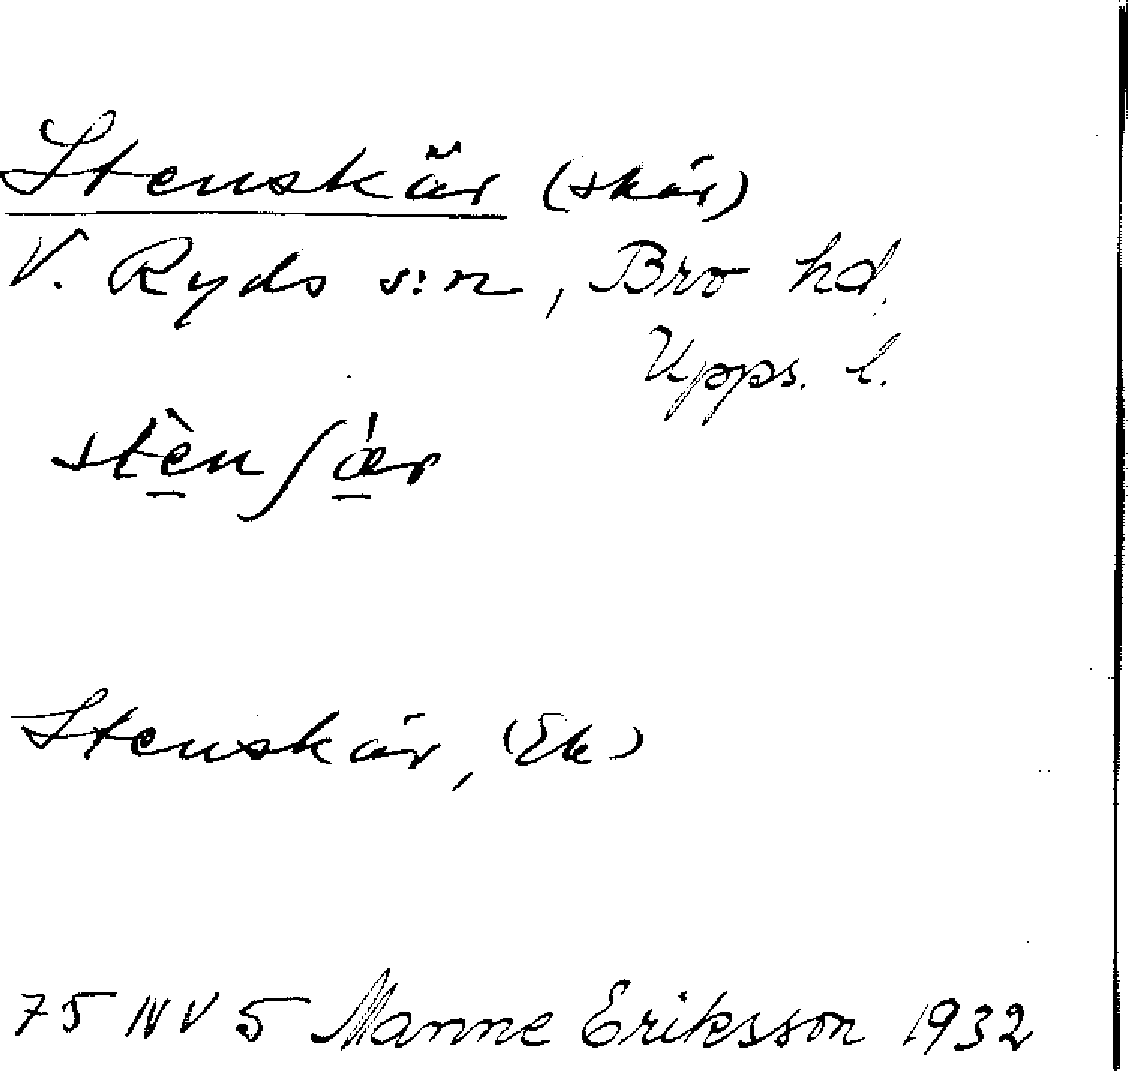 Stenskär (skär)
V. Ryds s:n, Bro hd.
Upps. l.
stèn∫ǽr
Stenskär, (Ek)
75 NV 5 Manne Eriksson 1932